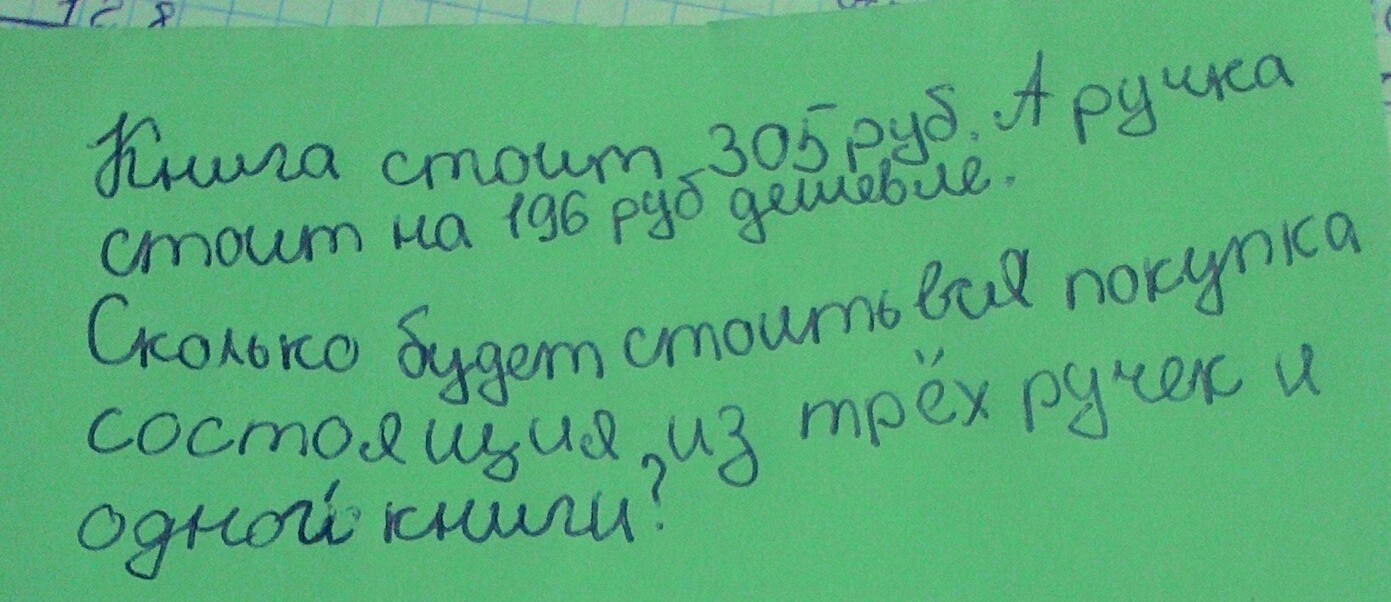 Книга стоит 305 руб. А ручка
стоит на 196 руб дешевле.
Сколько будет стоить вся покупка
состоящия, из трёх ручек и
одной книги?